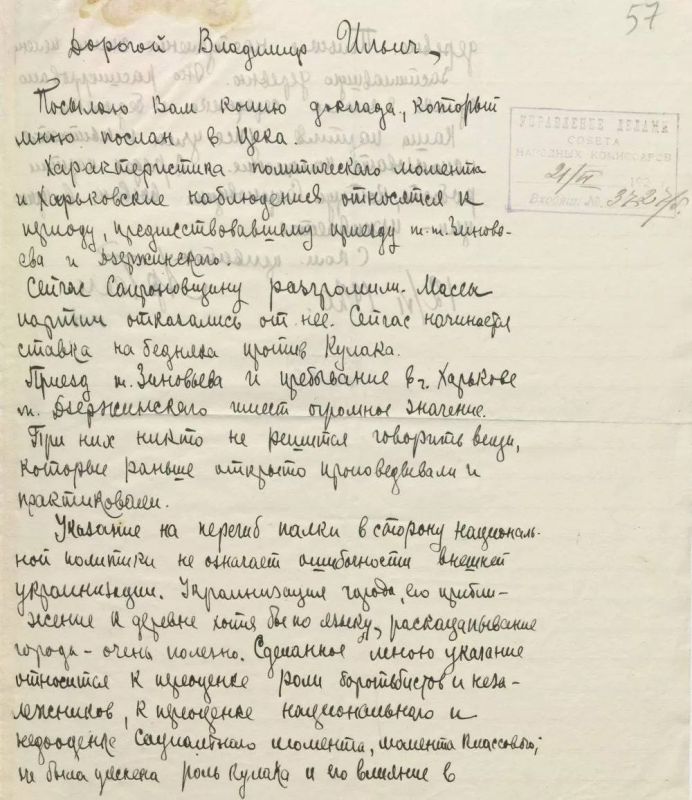 57
Дорогой Владимир Ильич,
УПРАВЛЕНИЕ ДЕЛАМИ
СОВЕТА
НАРОДНЫХ КОМИССАРОВ
21/VI 192
Входящ. №
Посылаю Вам копию доклада, который
мною послан в Цека.
Характеристика политического момента
и Харьковские наблюдения относятся к
периоду, предшествовавшему приезду т.т. Зиновь-
ева и Дзержинского.
Сейчас Сапроновщину разгромили. Массы
партии отказались от нее. Сейчас начинается
ставка на бедняка против Кулака.
Приезд т. Зиновьева и пребывание в г. Харькове
т. Дзержинского имеет огромное значение.
При них никто не решится говорить вещи,
которые раньше открыто проповедывали и
практиковали.
Указание на перегиб палки в сторону националь-
ной политики не означает ошибочности внешней
украинизации. Украинизация города, его прибли-
жение к деревне хотя бы по языку, раскацапывание
города – очень полезно. Сделанное мною указание
относится к переоценке роли боротьбистов и неза-
лежников, к переоценке национального и
недооценке социального момента, момента классового;
не была учтена роль кулака и его влияние в